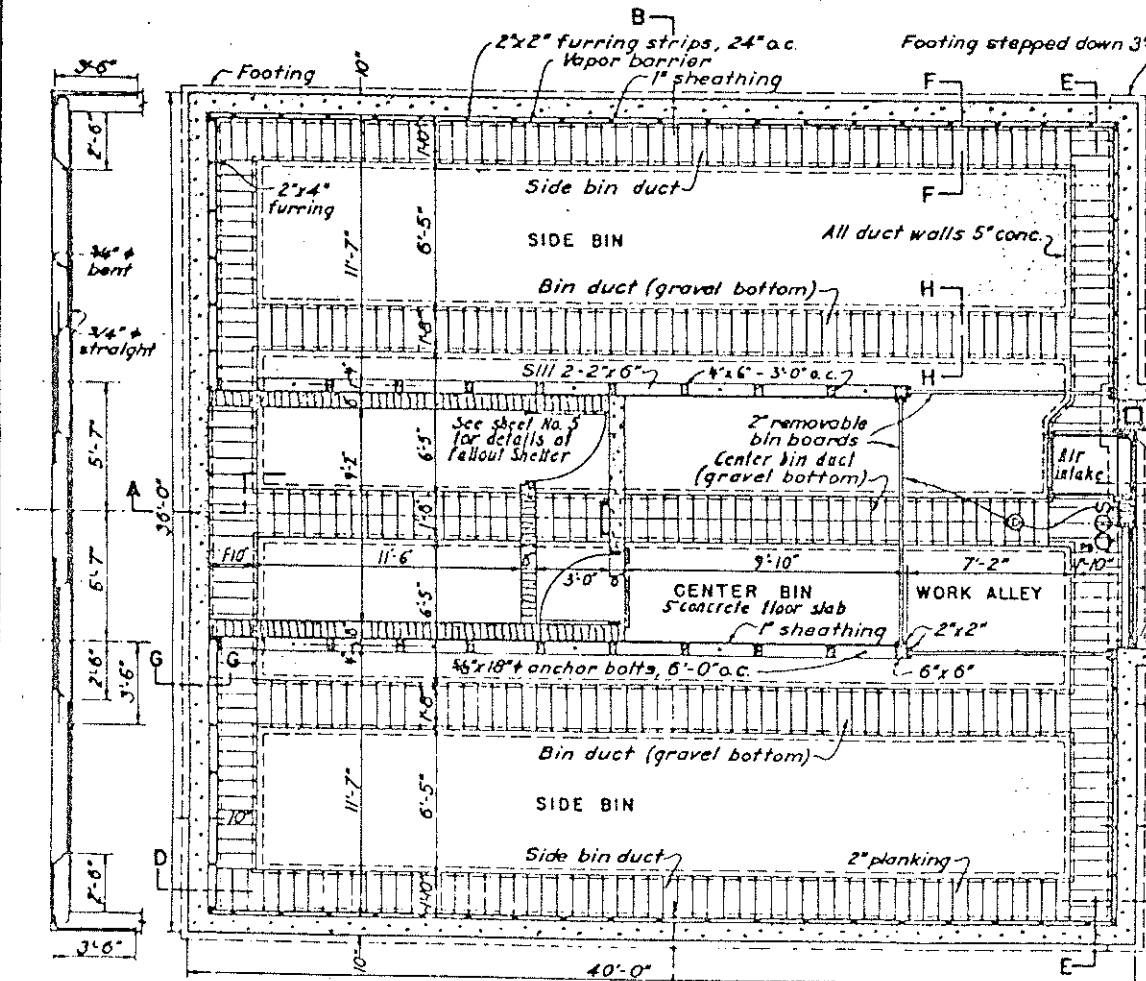 B
2"x2" furring strips, 24" o.c.
Vapor barrier
1" sheathing
Footing stepped down 3'
Footing
3'-6"
10"
F
E
2'-6"
1'-10"
2"x4"
furring
Side bin duct
F
11'-7"
6'-5"
SIDE BIN
All duct walls 5" conc.
3/4" ϕ
bent
Bin duct (gravel bottom)
H
3/4" ϕ
straight
1'-8"
Sill 2-2"x6"
4"x6" - 3'-0" o.c.
H
4"
6"
See sheet No. 5
for details of
fallout shelter
2" removable
bin boards
Center bin duct
(gravel bottom)
Air
intake
5'-7"
6'-5"
9'-2"
A
36'-0"
1'-8"
D
S
11'-6"
3'-0"
8"
9'-10"
7'-2"
1'-10"
6'-7"
6'-5"
CENTER BIN
5" concrete floor slab
WORK ALLEY
1" sheathing
2"x2"
G
G
4"
5/8"x18" ϕ anchor bolts, 6'-0" o.c.
6"x6"
2'-6"
3'-6"
1'-8"
Bin duct (gravel bottom)
11'-7"
6'-5"
SIDE BIN
10"
D
Side bin duct
2" planking
2'-6"
1'-10"
3'-6"
10"
40'-0"
E